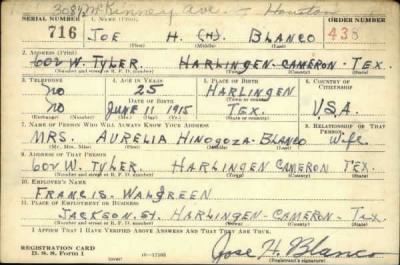 3084 McKinney Ave. - Houston
SERIAL NUMBER 1. NAME (Print) ORDER NUMBER
716 JOE H. (H.) BLANCO 438
(First) (Middle) (Last)
2. ADDRESS (Print)
602 W. TYLER. HARLINGEN-CAMERON-TEX.
(Number and street or R. F. D. number) (Town) (County) (State)
3. TELEPHONE 4. AGE IN YEARS 5. PLACE OF BIRTH 6. COUNTRY OF CITIZENSHIP
No 25 HARLINGEN
DATE OF BIRTH (Town or county)
No JUNE 11 1915 TEX. U.S.A.
(Exchange) (Number) (Mo.) (Day) (Yr.) (State or country)
7. NAME OF PERSON WHO WILL ALWAYS KNOW YOUR ADDRESS 8. RELATIONSHIP OF THAT PERSON
MRS. AURELIA HINOJOZA-BLANCO Wife
(Mr., Mrs., Miss) (First) (Middle) (Last)
9. ADDRESS OF THAT PERSON
602 W. TYLER. HARLINGEN CAMERON TEX.
(Number and street or R. F. D. number) (Town) (County) (State)
10. EMPLOYER'S NAME
FRANCIS-WALGREEN
11. PLACE OF EMPLOYMENT OR BUSINESS
JACKSON. ST. HARLINGEN-CAMERON-Tex
(Number and street or R. F. D. number) (Town) (County) (State)
I AFFIRM THAT I HAVE VERIFIED ABOVE ANSWERS AND THAT THEY ARE TRUE.
REGISTRATION CARD
D. S. S. Form 1 Jose H. Blanco
(Registrant's signature)